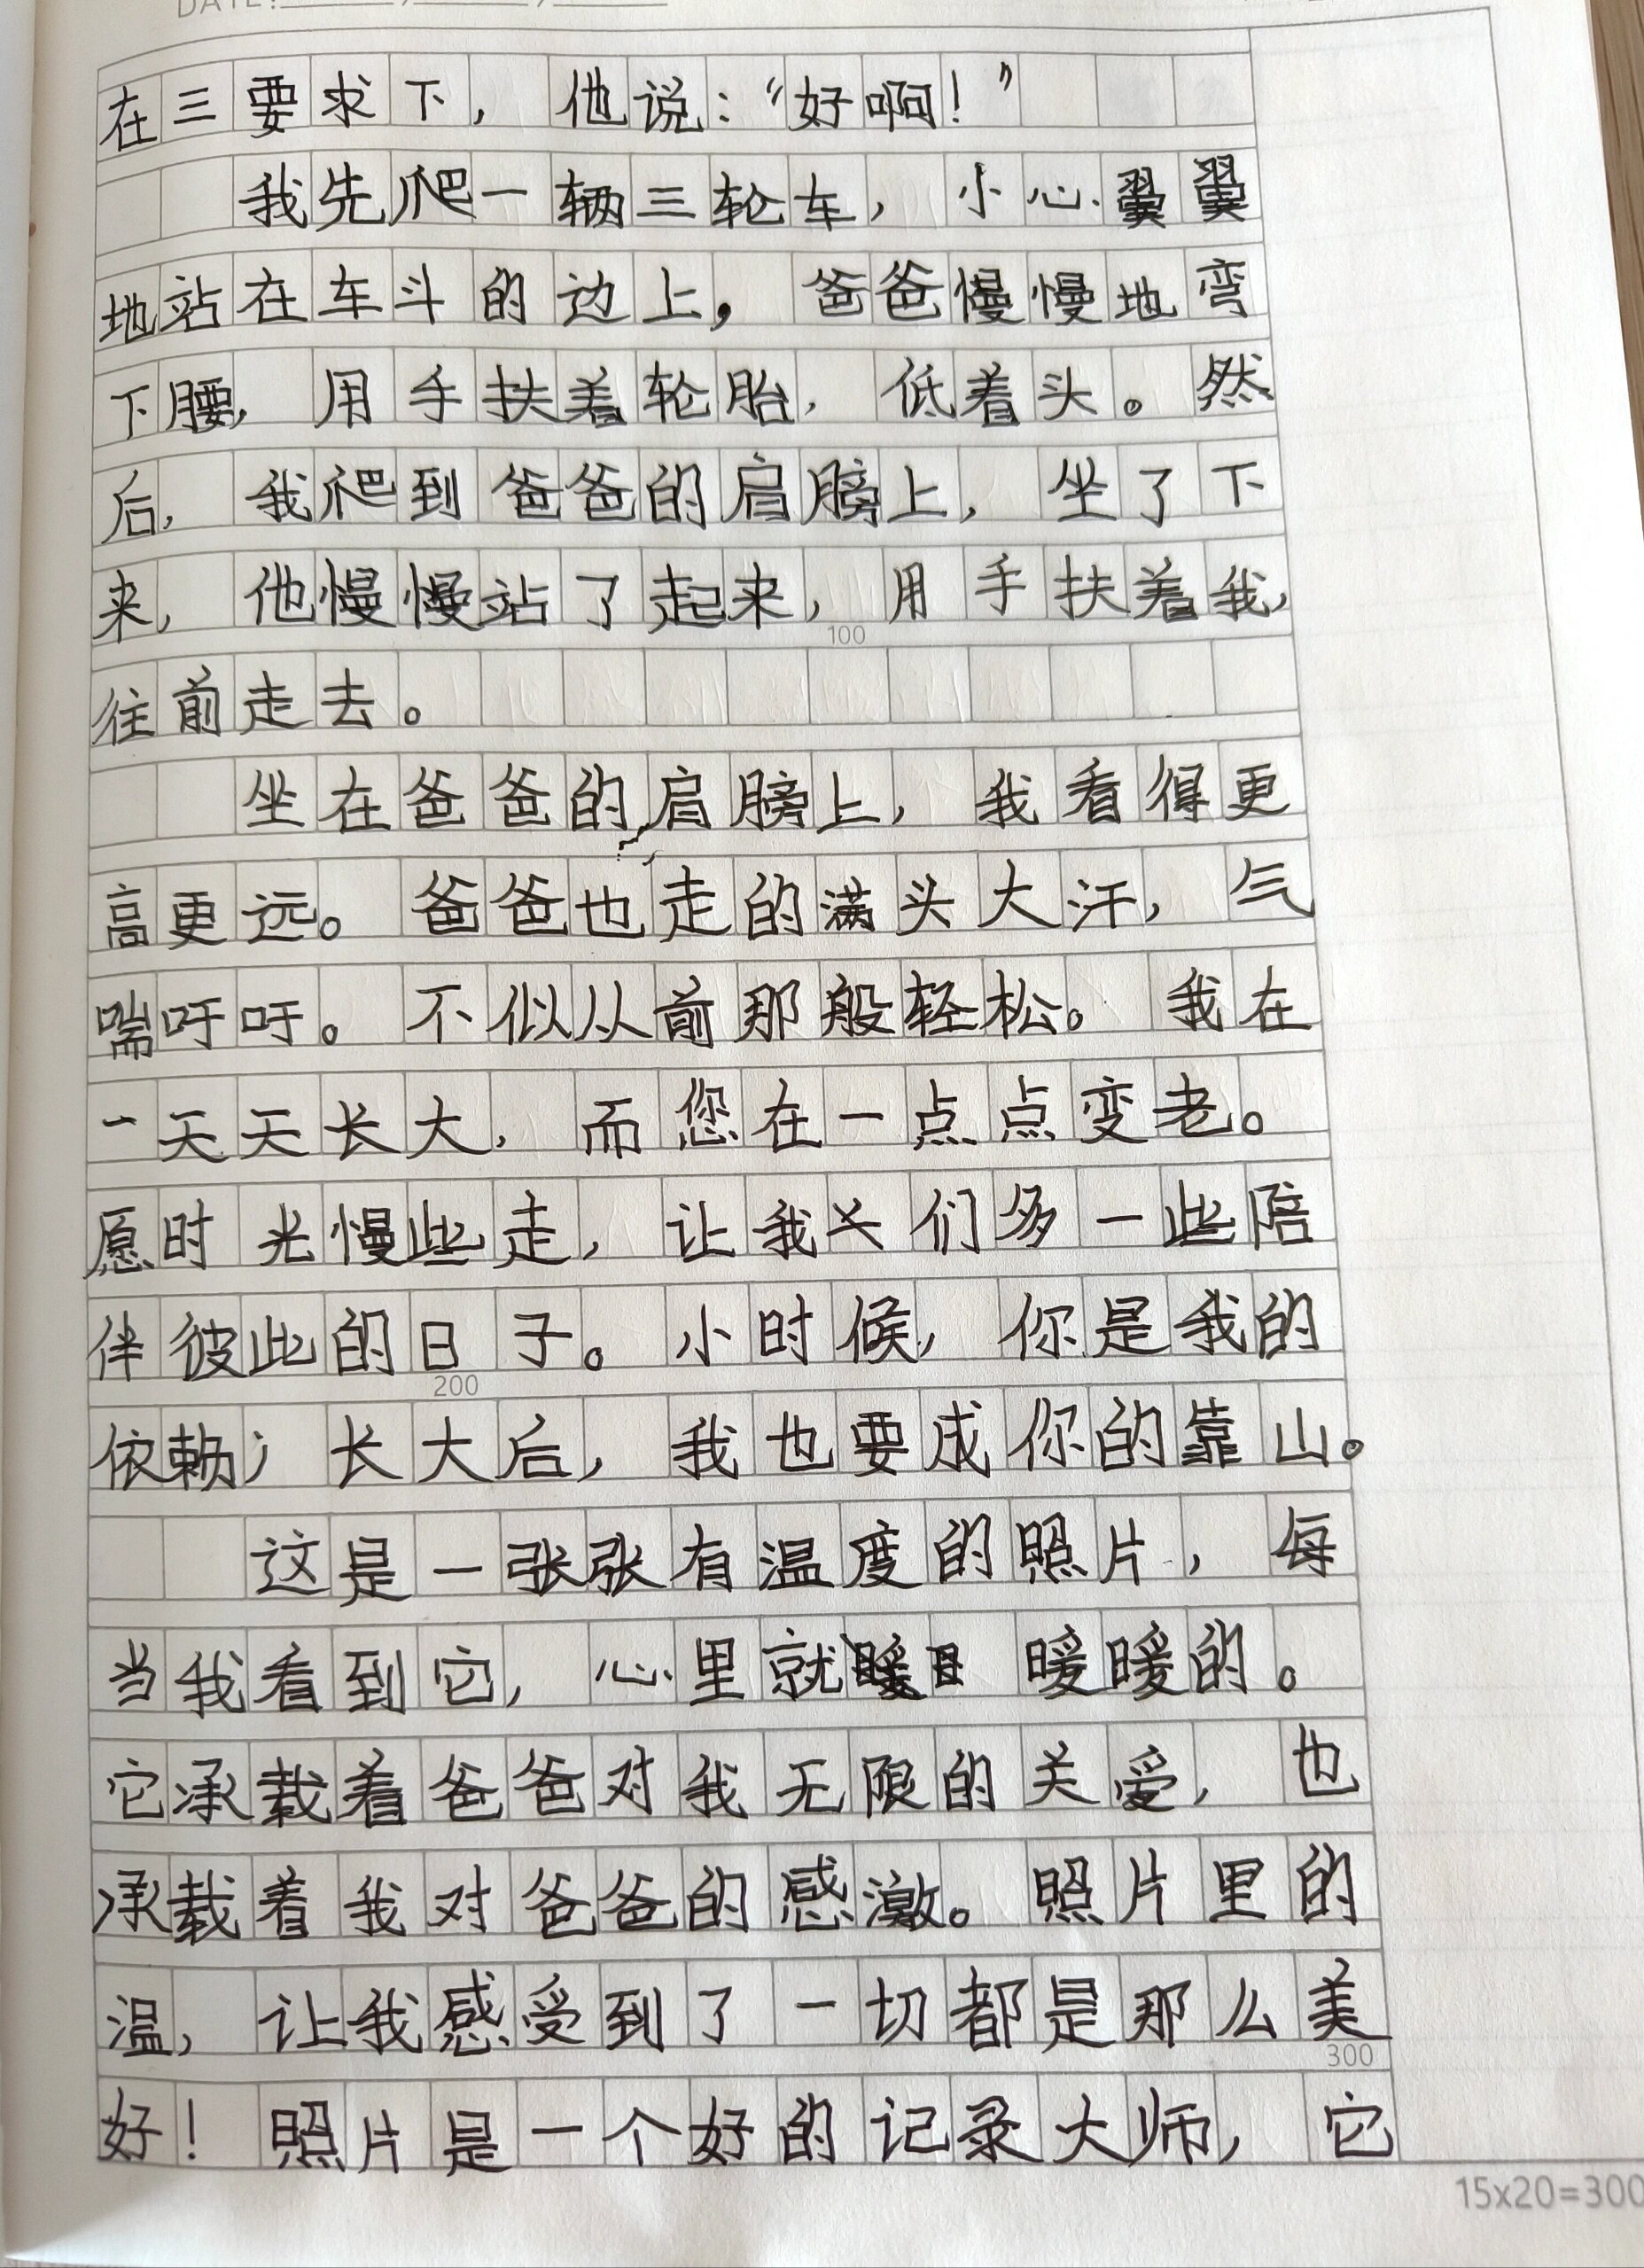 DATE:
在三要求下，他说：“好啊！”
我先爬一辆三轮车，小心翼翼
地站在车斗的边上，爸爸慢慢地弯
下腰，用手扶着轮胎，低着头。然
后，我爬到爸爸的肩膀上，坐了下
来，他慢慢站了起来，用手扶着我，
100
往前走去。
坐在爸爸的肩膀上，我看得更
高更远。爸爸也走的满头大汗，气
喘吁吁。不似从前那般轻松。我在
一天天长大，而您在一点点变老。
愿时光慢些走，让我们多一些陪
伴彼此的日子。小时候，你是我的
200
依赖；长大后，我也要成你的靠山。
这是一张张有温度的照片，每
当我看到它，心里就暖暖的。
它承载着爸爸对我无限的关爱，也
承载着我对爸爸的感激。照片里的
温，让我感受到了一切都是那么美
300
好！照片是一个好的记录大师，它
15x20=300